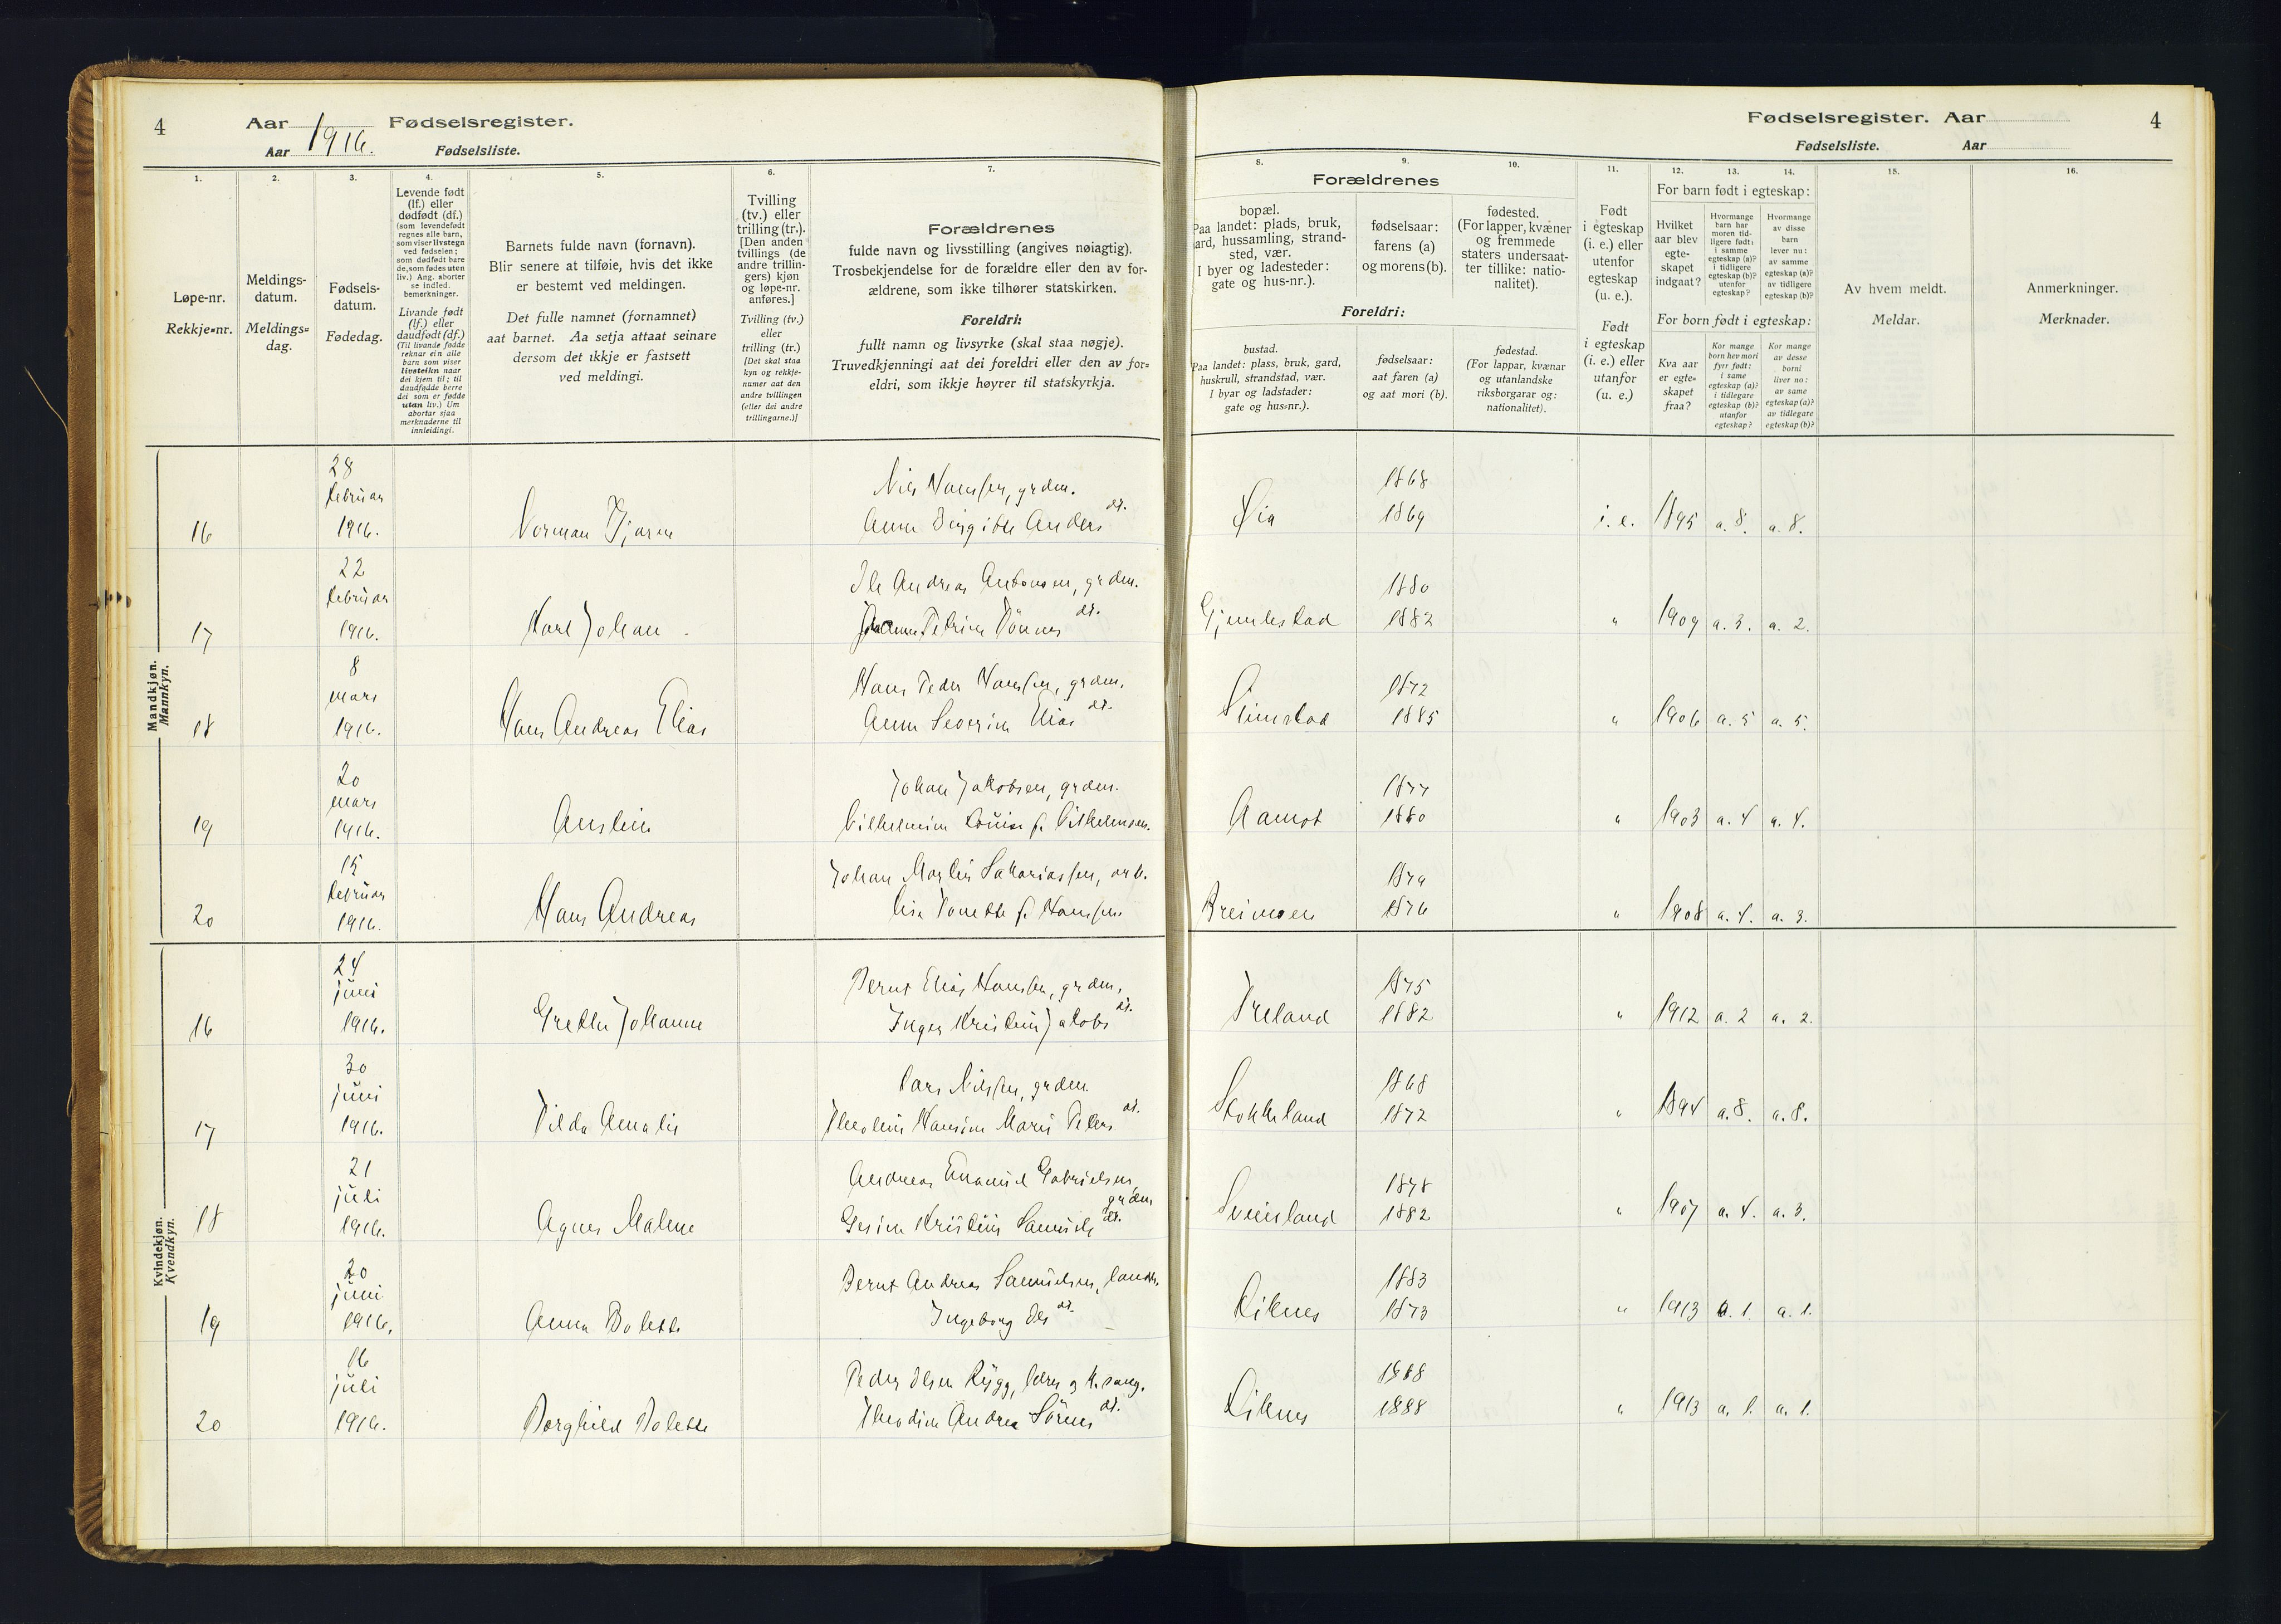 4
Aar 1916. Fødselsregister.
Aar Fødselsliste.
Fødselsregister. Aar
Fødselsliste. Aar
4
1.
Løpe-nr.
Rekkje-nr.
2.
Meldings-
datum.
Meldings-
dag.
3.
Fødsels-
datum.
Fødedag.
4.
Levende født
(lf.) eller
dødfødt (df.)
(som levendefødt
regnes alle barn,
som viser livstegn
ved fødselen;
som dødfødt bare
de, som fødes uten
liv.) Ang. aborter
se indled.
bemerkninger.
Livande født
(lf.) eller
daudfødt (df.)
(Til livande fødde
reknar ein alle
barn som viser
livsteikn naar
dei kjem til; til
daudfødde berre
dei som er fødde
utan liv.) Um
abortar sjaa
merknaderne til
innleidingi.
5.
Barnets fulde navn (fornavn).
Blir senere at tilføie, hvis det ikke
er bestemt ved meldingen.
Det fulle namnet (fornamnet)
aat barnet. Aa setja attaat seinare
dersom det ikkje er fastsett
ved meldingi.
6.
Tvilling
(tv.) eller
trilling (tr.).
[Den anden
tvillings (de
andre trillin-
gers) kjøn
og løpe-nr.
anføres.]
Tvilling (tv.)
eller
trilling (tr.)
[Det skal staa
kyn og rekkje-
numer aat den
andre tvillingen
(eller dei andre
trillingarne.)]
7.
Forældrenes
fulde navn og livsstilling (angives nøiagtig).
Trosbekjendelse for de forældre eller den av for-
ældrene, som ikke tilhører statskirken.
Foreldri:
fullt namn og livsyrke (skal staa nøgje).
Truvedkjenningi aat dei foreldri eller den av for-
eldri, som ikkje høyrer til statskyrkja.
8.
Forældrenes
bopæl.
Paa landet: plads, bruk,
gard, hussamling, strand-
sted, vær.
I byer og ladesteder:
gate og hus-nr.).
Foreldri:
bustad.
Paa landet: plass, bruk, gard,
huskrull, strandstad, vær.
I byar og ladstader:
gate og hus-nr.).
9.
fødselsaar:
farens (a)
og morens (b).
fødselsaar:
aat faren (a)
og aat mori (b).
10.
fødested.
(For lapper, kvæner
og fremmede
staters undersaat-
ter tillike: natio-
nalitet).
fødestad.
(For lappar, kvænar
og utanlandske
riksborgarar og:
nationalitet).
11.
Født
i egteskap
(i. e.) eller
utenfor
egteskap
(u. e.).
Født
i egteskap
(i. e.) eller
utanfor
(u. e.)
12. 13. 14.
For barn født i egteskap:
Hvilket
aar blev
egte-
skapet
indgaat?
Hvormange
barn har
moren tid-
ligere født:
i samme
egteskap (a)?
i tidligere
egteskap (b)?
utenfor
egteskap?
Hvormange
av disse
barn
lever nu:
av samme
egteskap (a)?
av tidligere
egteskap (b)?
For born født i egteskap:
Kva aar
er egte-
skapet
fraa?
Kor mange
born hev mori
fyrr født:
i same
egteskap (a)?
i tidlegare
egteskap (b)?
utanfor
egteskap?
Kor mange
av desse
borni
liver no:
av same
egteskap (a)?
av tidlegare
egteskap (b)?
15.
Av hvem meldt.
Meldar.
16.
Anmerkninger.
Merknader.
Mandkjøn.
Mannkyn.
16 28 februar 1916. Norman Bjarne
Nils Hansen, grdm.
Anne Birgitte Anders dt.
Øia 1868 1869 i. e. 1895 a. 8. a. 8.
17 22 februar 1916. Karl Johan
Ole Andreas Antonsen, grdm.
Petrine Tönnes dt.
Gjemlestad 1880 1882 " 1909 a. 3. a. 2.
18 8 mars 1916. Hans Andreas Elias
Hans Peder Hansen, grdm.
Anne Severine Elias dt.
1872 1885 " 1906 a. 5 a. 5.
19 20 mars 1916.
Johan Jakobsen, grdm.
Vilhelmine Louise f. Vilhelmsen.
Aamot 1877 1880 " 1903 a. 4 a. 4.
20 15 februar 1916. Hans Andreas
Johan Martin Sakariassen, arb.
Lise Tonette f. Hansen
Breimoen 1879 1876 " 1908 a. 4. a. 3.
Kvindekjøn.
Kvendkyn.
16 24 juni 1916. Grethe Johanne
Bernt Elias Hansen, grdm.
Inger Kristine Jakobs dt.
Træland 1875 1882 " 1912 a. 2 a. 2.
17 30 juni 1916. Tilda Amalie
Lars Nilsen, grdm.
Theoline Hansine Marie Peters dt.
Stokkeland 1868 1872 " 1894 a. 8. a. 8.
18 21 juli 1916. Agnes Malene
Andreas Emanuel Gabrielsen,
grdm
Gesine Kristine Samuels dt.
Sveisland 1878 1882 " 1907 a. 4. a. 3.
19 20 juni 1916. Anna Bolette
Bernt Andreas Samuelsen,
Ingeborg Ols dt.
Liknes 1883 1873 " 1913 a. 1. a. 1.
20 16 juli 1916. Borghild Bolette
Peder Olsen Rygg, lærer og k.sang.
Theodine Andrea Sörens dt.
Liknes 1888 1888 " 1913 a. 1. a. 1.